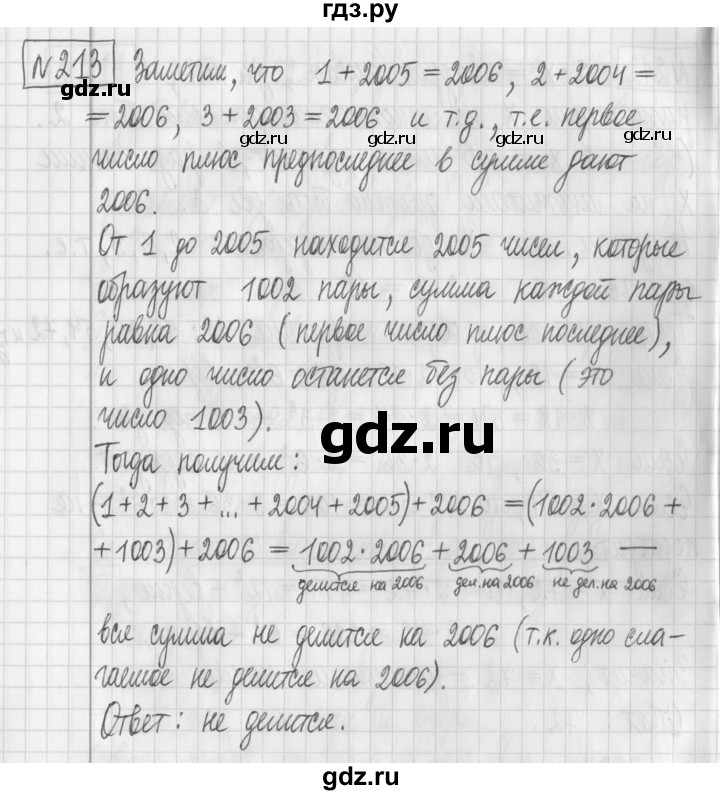 гдз.ру
№213 Заметим, что 1+2005=2006, 2+2004=
gdz.ru gdz.ru
=2006, 3+2003=2006 и т.д., т.е. первое
gdz.ru gdz.ru
число плюс предпоследнее в сумме дают
2006.
От 1 до 2005 находится 2005 чисел, которые
образуют 1002 пары, сумма каждой пары
равна 2006 (первое число плюс последнее),
и одно число останется без пары (это
число 1003).
gdz.ru
Тогда получим:
(1+2+3+...+2004+2005)+2006 =(1002·2006+
+1003)+2006 = 1002·2006+2006+1003 —
делится на 2006 дел. на 2006 не дел. на 2006
вся сумма не делится на 2006 (т.к. одно сла-
гаемое не делится на 2006).
Ответ: не делится.
gdz.ru gdz.ru
gdz.ru